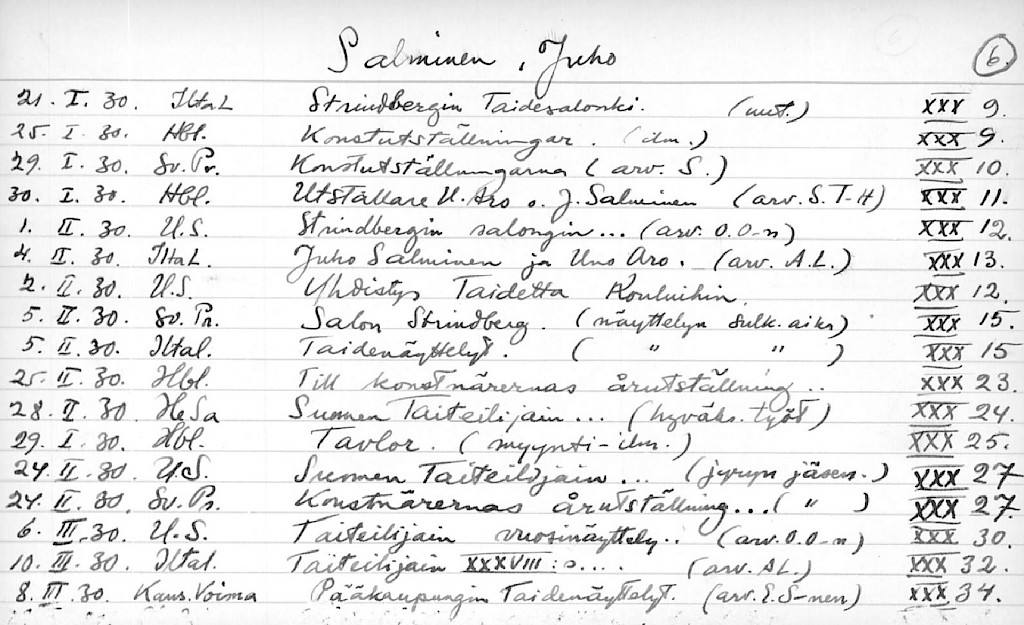 Salminen, Juho 6.
21. I. 30. Iltal. Strindbergin Taidesalonki. (uut.) XXX 9.
25. I. 30. Hbl. Konstutställningar. (ilm.) XXX 9.
29. I. 30. Sv. Pr. Konstutställningarna (arv. S.) XXX 10.
30. I. 30. Hbl. Utställare U. Aro o. J. Salminen (arv. S. T-H) XXX 11.
1. II. 30. U.S. Strindbergin salongin... (arv. O.O-n) XXX 12.
4. II. 30. Iltal. Juho Salminen ja Uno Aro. (arv. A.L.) XXX 13.
2. II. 30. U.S. Yhdistys Taidetta Kouluihin. XXX 12.
5. II. 30. Sv. Pr. Salon Strindberg. (näyttelyn sulk. aika) XXX 15.
5. II. 30. Iltal. Taidenäyttelyt. ( " " ) XXX 15
25. II. 30. Hbl. Till konstnärernas årutställning.. XXX 23.
28. II. 30 HeSa Suomen Taiteilijain... (hyväks. työt) XXX 24.
29. I. 30. Hbl. Tavlor. (myynti-ilm.) XXX 25.
24. II. 30 U.S. Suomen Taiteilijain... (juryn jäsen.) XXX 27
24. II. 30. Sv. Pr. Konstnärernas årutställning... ( " ) XXX 27.
6. III. 30. U.S. Taiteilijain vuosinäyttely.. (arv. O.O-n) XXX 30.
10. III. 30. Iltal. Taiteilijain XXXVIII:s.... (arv. AL.) XXX 32.
8. III. 30. Kans. Voima Pääkaupungin Taidenäyttelyt. (arv. E.S-nen) XXX 34.